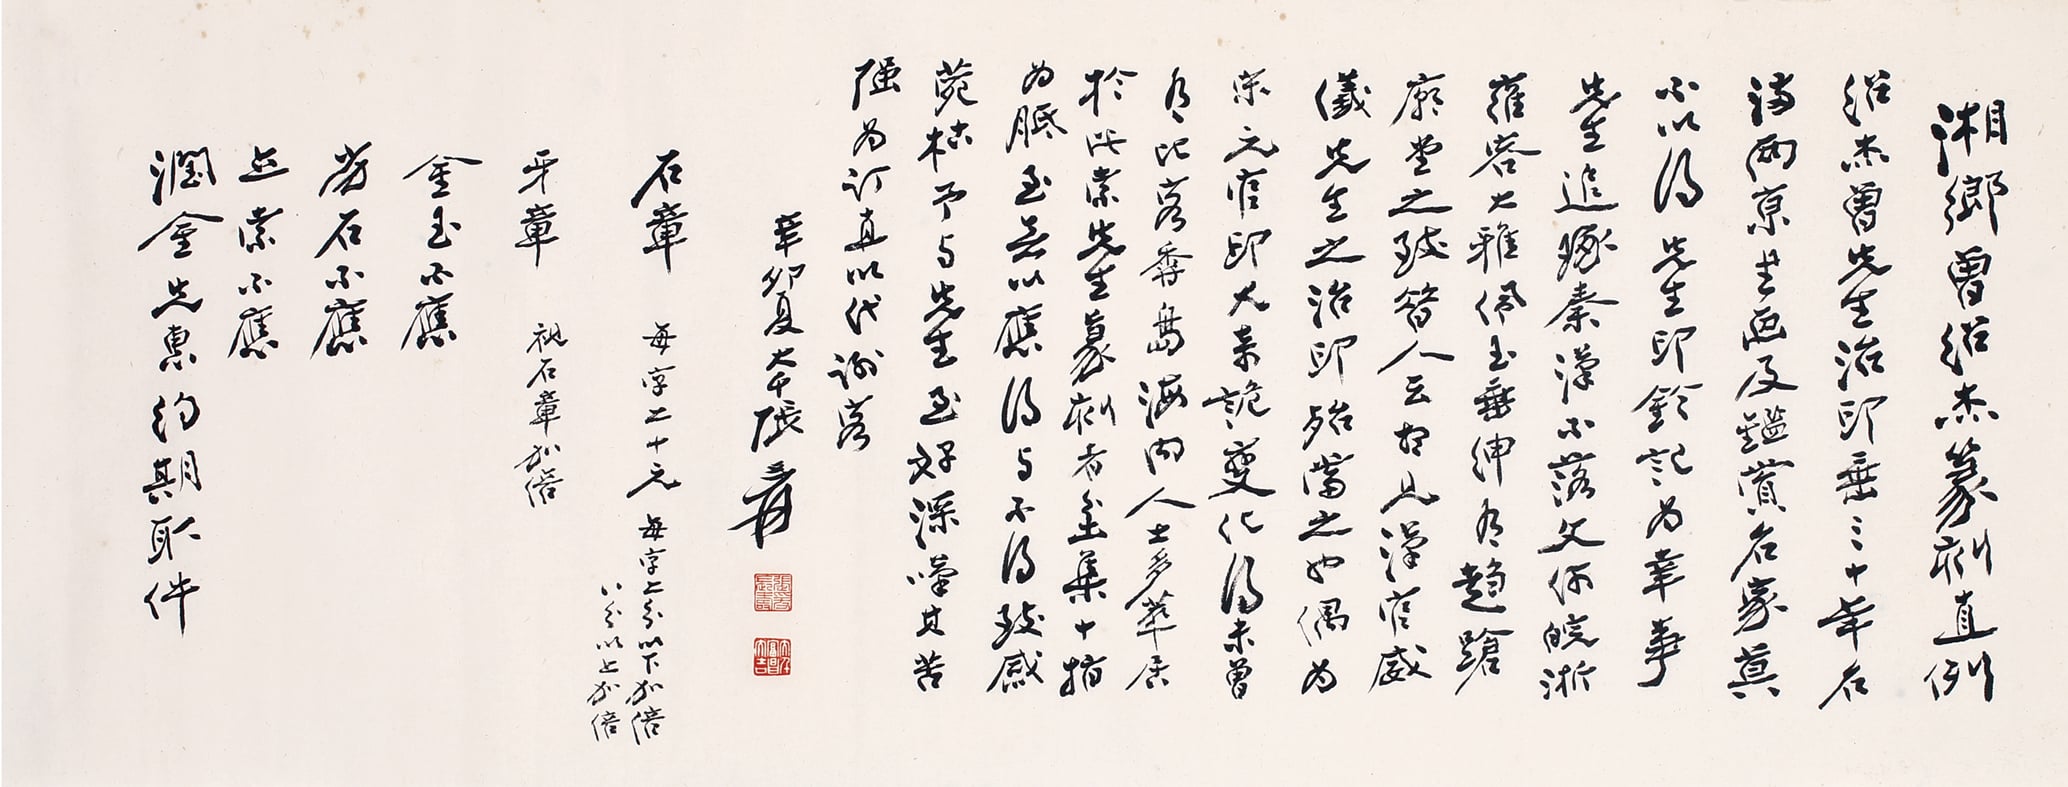 湘鄉曾紹杰篆刻直例
紹杰曾先生治印垂三十年名
滿兩京書画及鑑賞名家莫
不以得先生印鈐記為幸事
先生追琢秦漢不落文何皖浙
雍容大雅佩玉垂紳有趨蹌
廊堂之致昔人云想見漢官威
儀先生之治印殆當之也偶為
宋元官印尤柔詭變化得未曾
有比客季島海內人士多萃居
於此索先生篆刻者坌集十指
為胝至無以應得与不得致感
菀枯予与先生至好深嘆其苦
强為訂直以代謝客
辛卯夏大千張爰
石章 每字二十元 每字二分以下加倍
八分以上加倍
牙章 視石章加倍
金玉不應
劣石不應
立索不應
潤金先惠約期取件